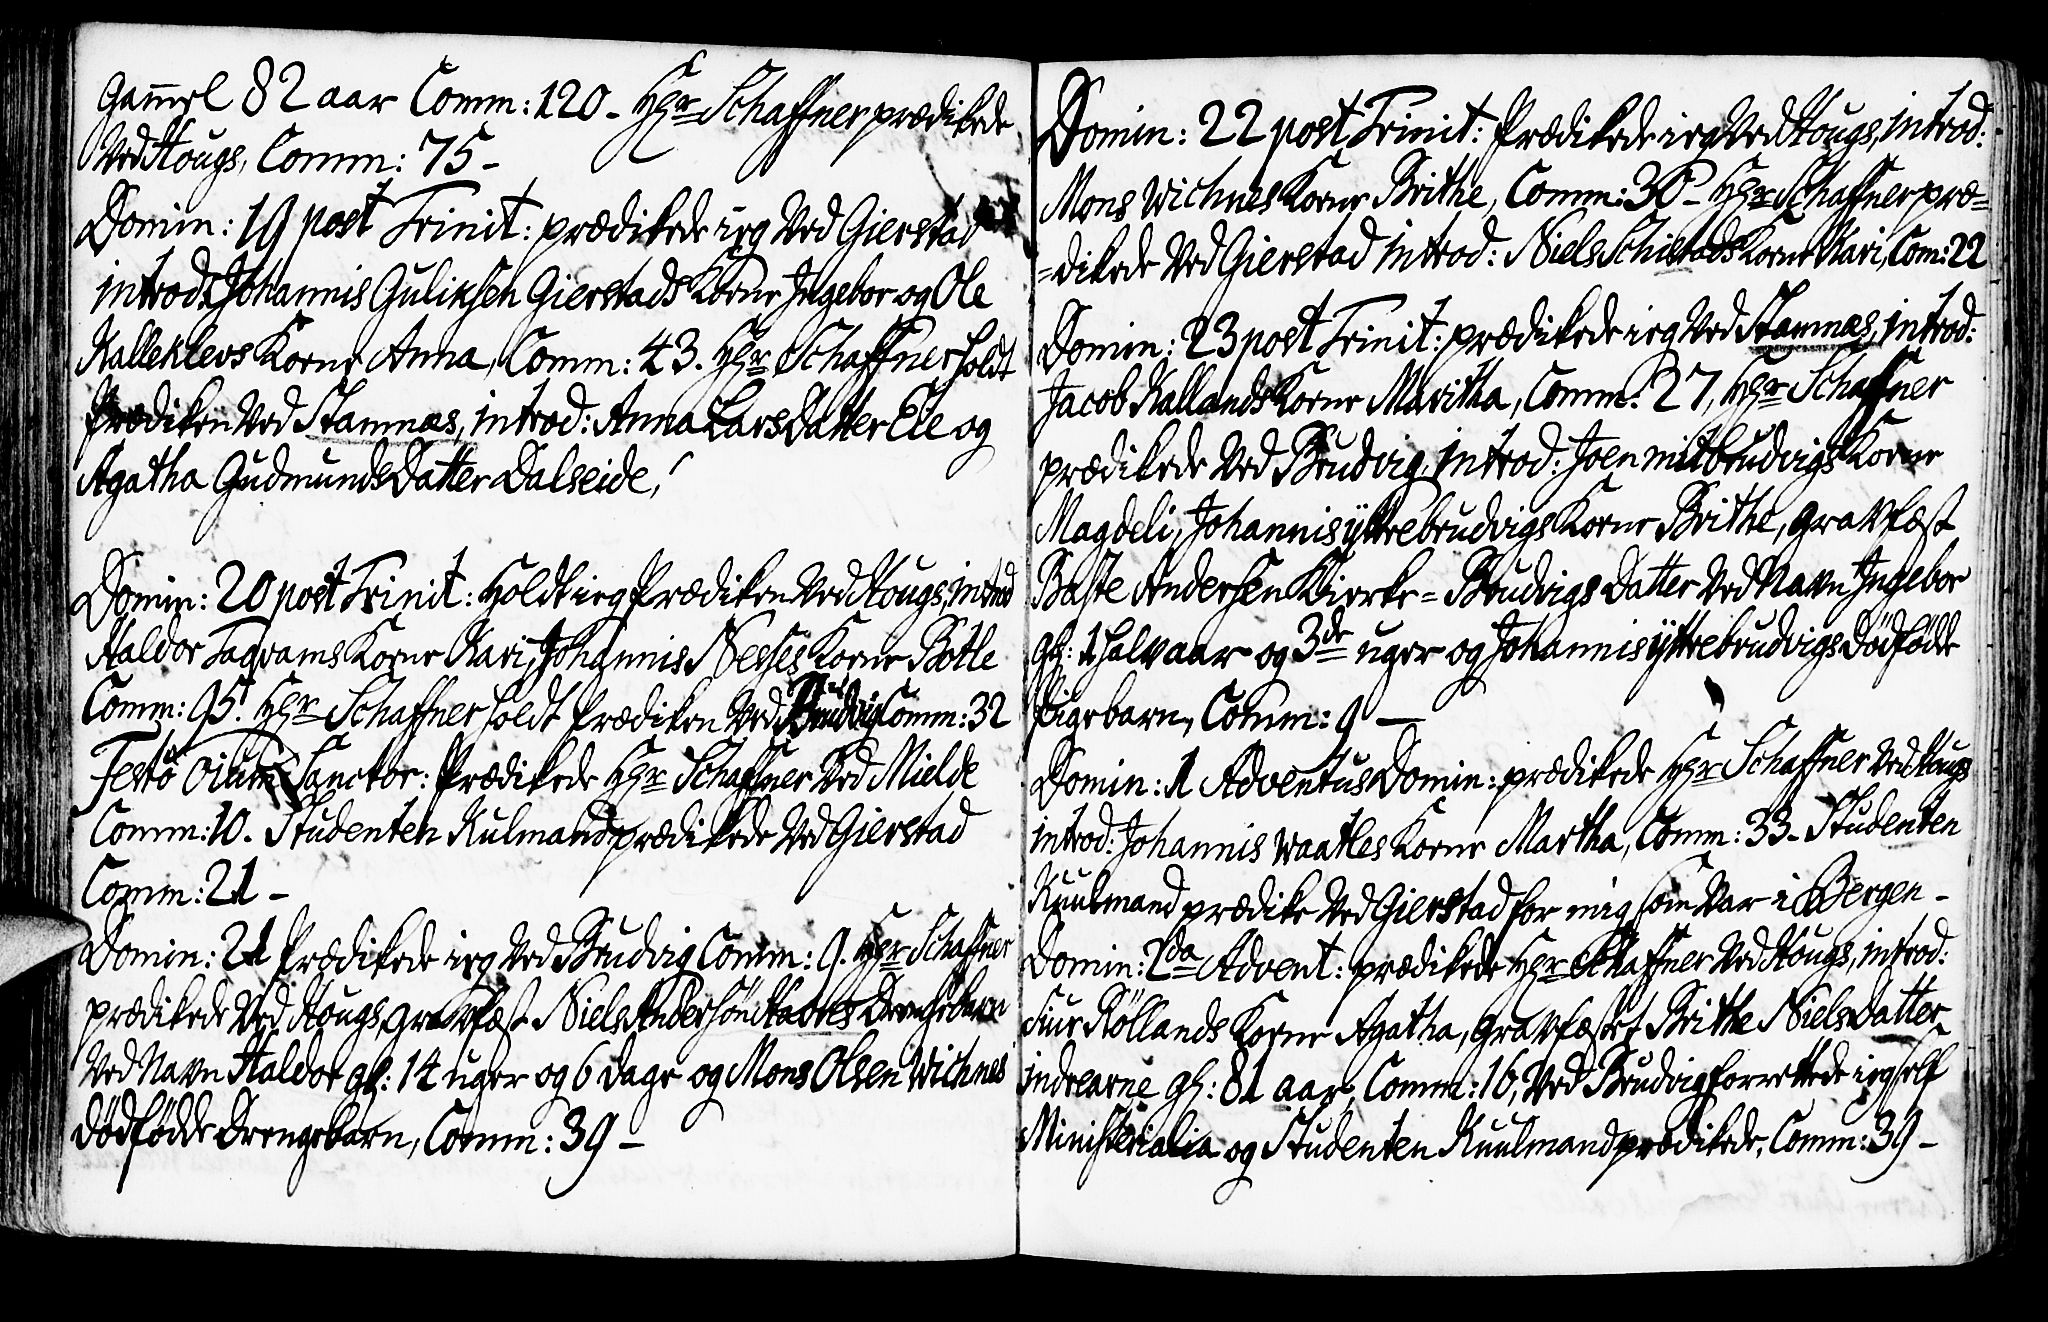 Gam̄el 82 aar Comm: 120 - Hr Schaffner prædikede
Ved Hougs, Comm: 75 -
Domin: 19 post Trinit: prædikede ieg Ved Gierstad
introd: Johannis Guliksen Gierstads Kone Ingebor og Ole
Kalleklevs Kone Anna, Comm: 43. Hr Schaffner holdt
Prædiken Ved Stamnæs, introd: Anna LarsDatter Eie og
Agatha GudmundsDatter Dalseide,
Domin: 20 post Trinit: Holdt ieg Prædiken Ved Hougs, introd
Haldor Fagvams Kone Kari, Johannis Neeses Kone Botle
Comm: 95. Hr Schaffner holdt Prædiken Ved Brudvig Comm: 32
Festo Oium Sanctor: Prædikede Hr Schaffner Ved Mielde
Comm: 10. Studenten Kulmand prædikede Ved Gierstad
Comm: 21 -
Domin: 21 Prædikede ieg Ved Brudvig Comm: 9. Hr Schaffner
prædikede Ved Hougs, gravfæst Niels Andersön Drengebarn
Ved Navn Haldor gl: 14 uger og 6 dage og Mons Olsen Wichnes
dödfödde Drengebarn, Comm: 39 -
Domin: 22 post Trinit: Prædikede ieg Ved Hougs, introd:
Mons Wichnes Kone Brithe, Comm: 36 - Hr Schaffner præ=
=dikede Ved Gierstad introd: Niels Schistads Kone Kari, Com: 22
Domin: 23 post Trinit: prædikede ieg Ved Stamnæs, introd:
Jacob Kallands Kone Maritha, Comm: 27, Hr Schaffner
prædikede Ved Brudvig, introd: Joen mitbrudvigs Kone
Magdeli, Johannis ÿttrebrudvigs Kone Brithe, gravfæst
Baste Andersen Kierke=Brudvigs Datter Ved Navn Ingebor
gl: 1 halv aar og 3de uger og Johannis ÿttrebrudvigs dödfödde
Pigebarn, Comm: 9 -
Domin: 1 Adventus Domin: prædikede Hr Schaffner Ved Hougs
introd: Johannis Waatles Kone Martha, Comm: 33 - Studenten
Kuulmand prædike Ved Gierstad for mig som Var i Bergen -
Domin: 2da Advent: prædikede Hr Schaffner Ved Hougs, introd:
Siur Röllands Kone Agatha, gravfæstet Brithe NielsDatter
indrearne gl: 81 aar, Comm: 16, Ved Brudvig forrettede ieg self
Ministerialia og Studenten Kuulmand prædikede, Comm: 39 -